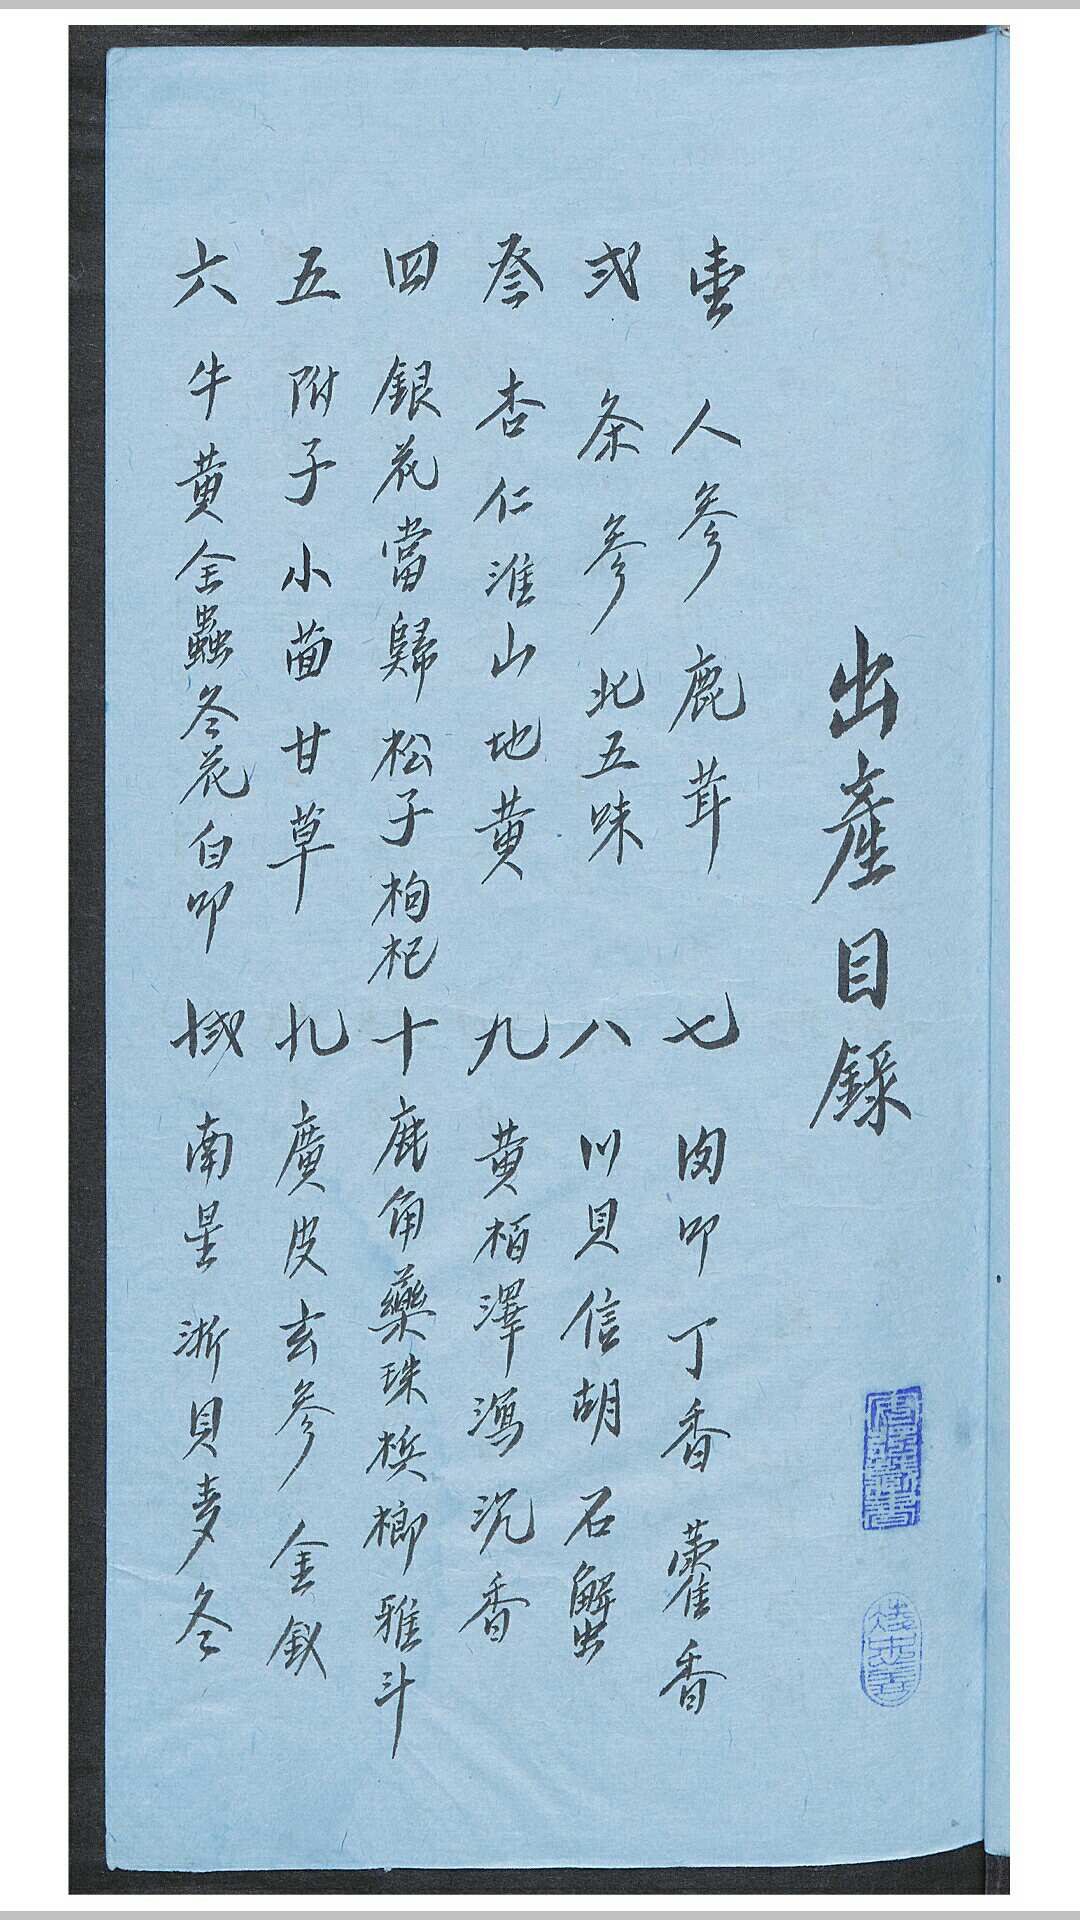 出產目錄
壹 人參 鹿茸 七 肉叩 丁香 藿香
弍 条參 北五味 八 川貝 信胡 石蟹
叁 杏仁 淮山 地黄 九 黄栢 澤瀉 沉香
四 銀花 當歸 松子 枸杞 十 鹿角 藥珠 梹榔 雅斗
五 附子 小茴 甘草 十一 廣皮 玄參 金釵
六 牛黄 全蟲 冬花 白叩 十弍 南星 浙貝 麦冬